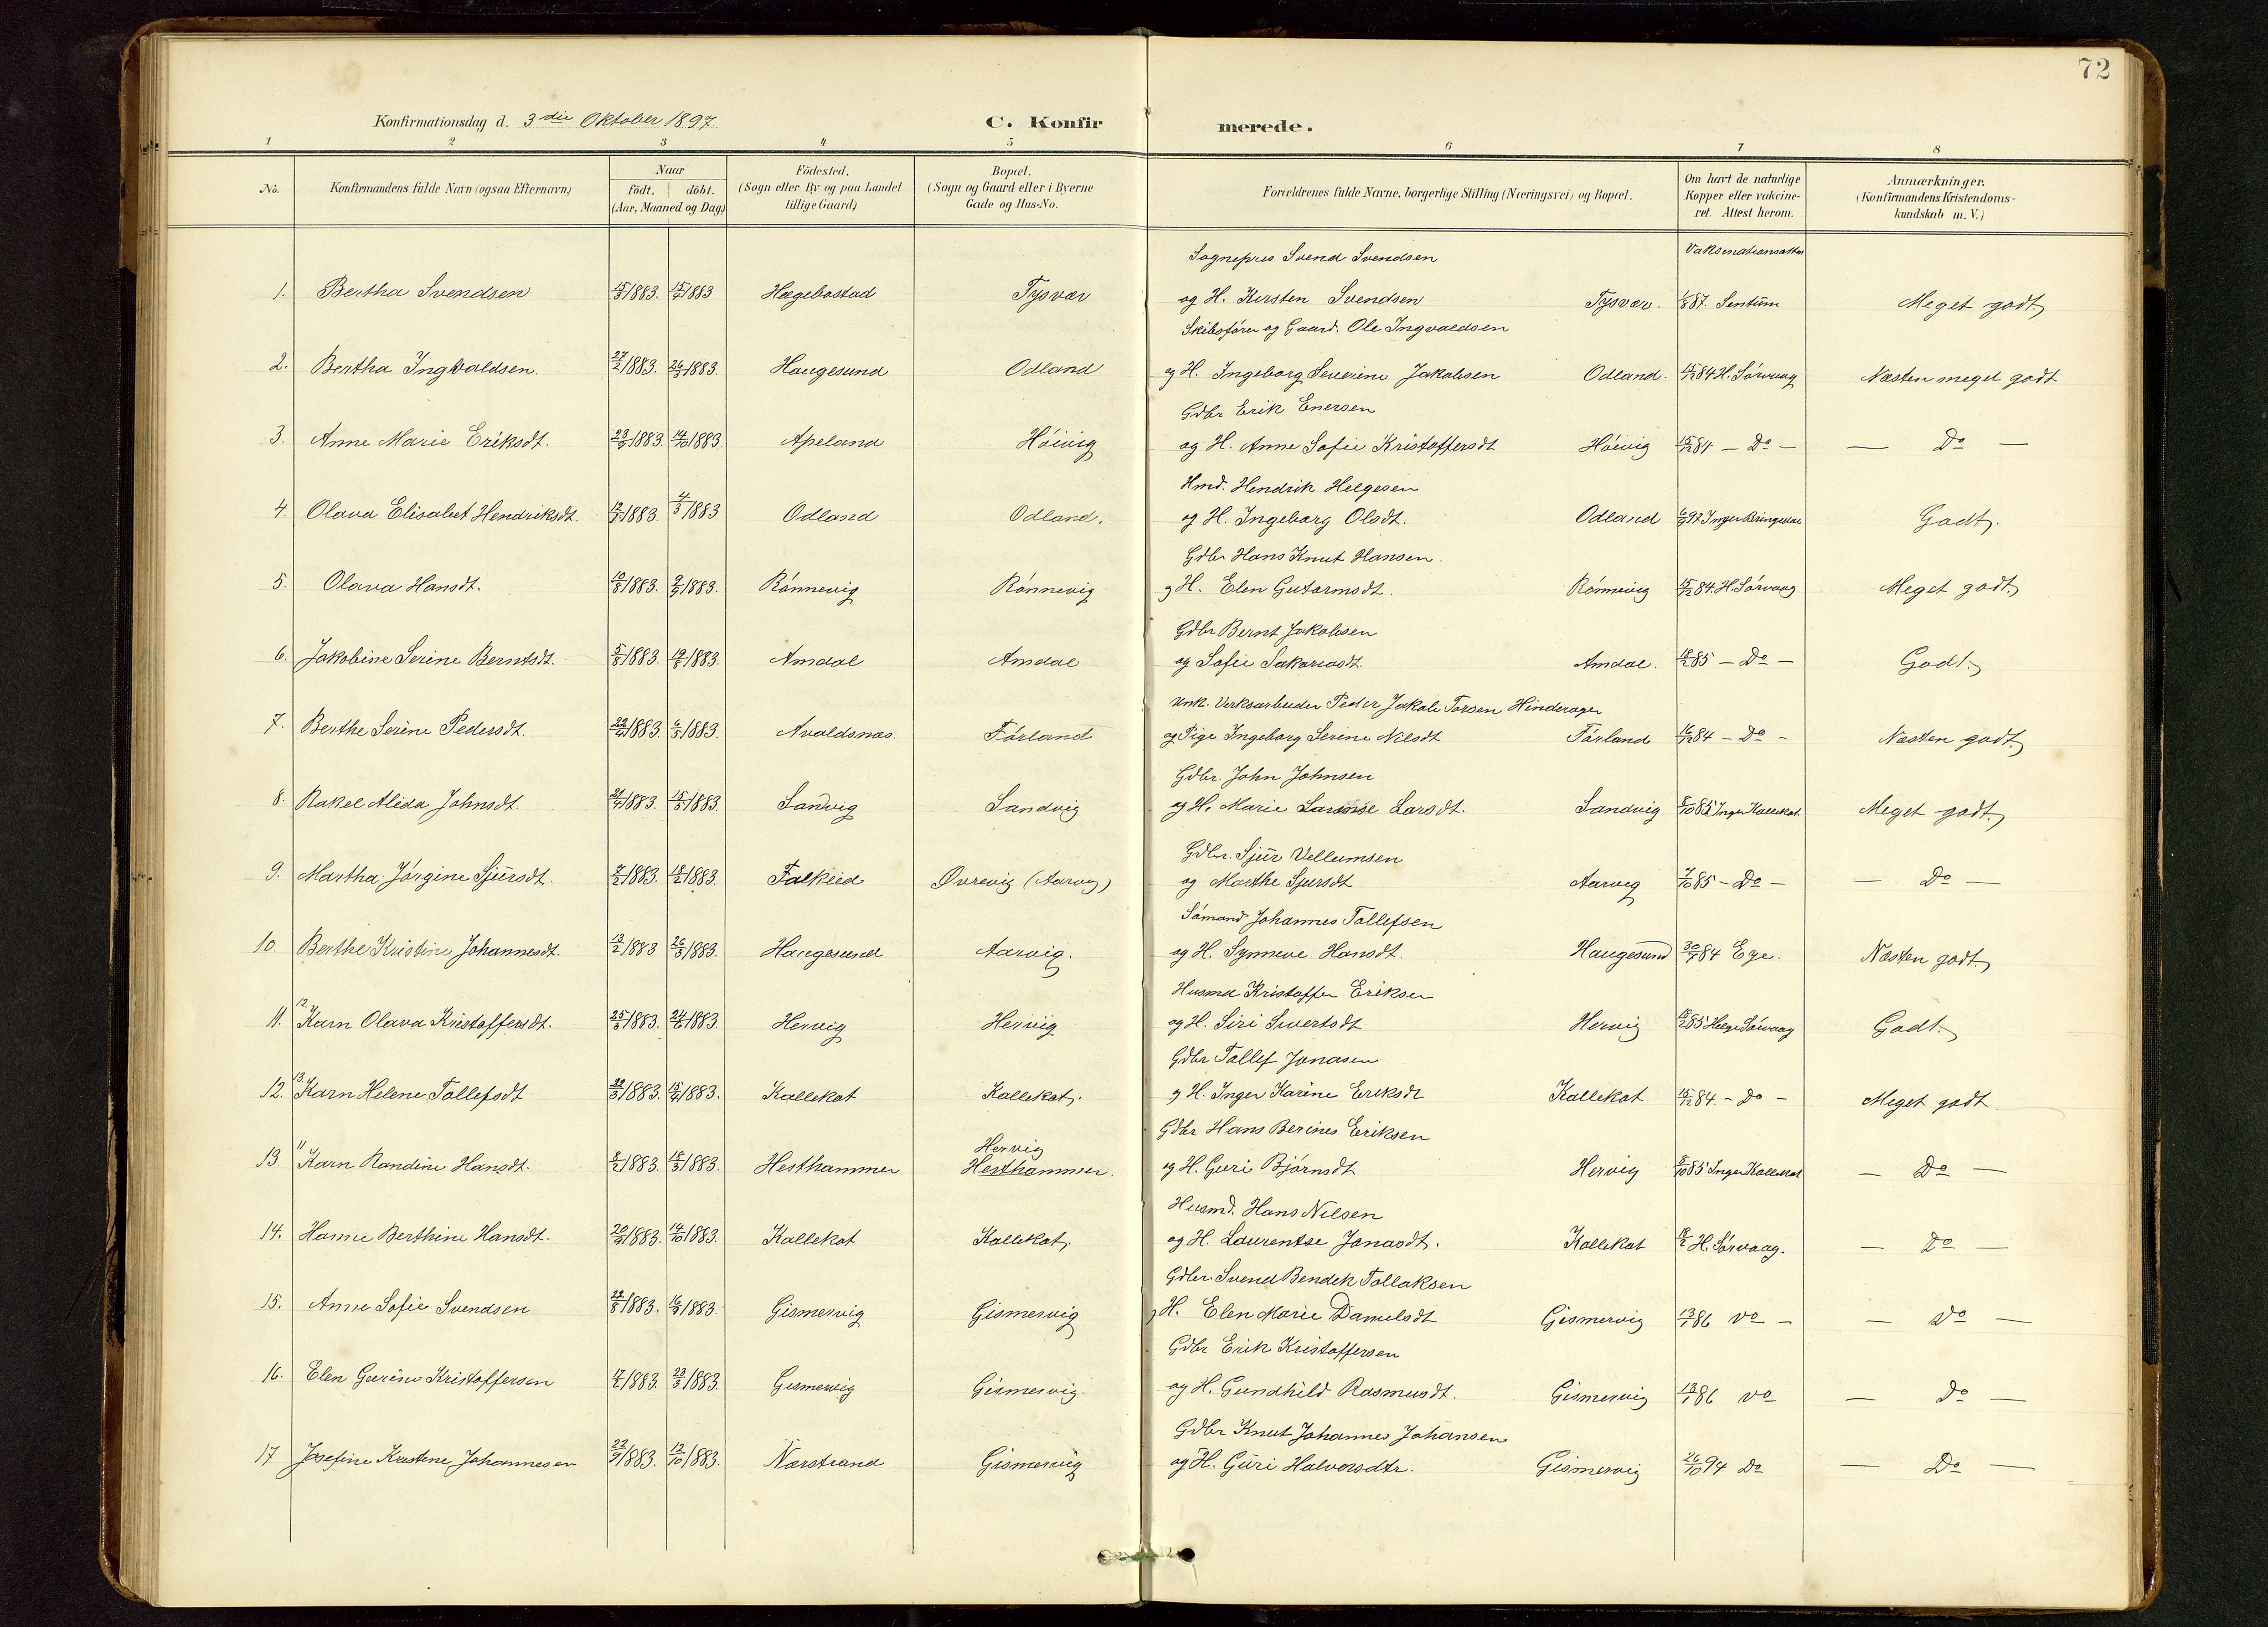 72
Konfirmationsdag d. 3die Oktober 1897.
C. Konfirmerede.
1 2 3 4 5 6 7 8
No.
Konfirmandens fulde Navn (ogsaa Efternavn)
Naar
födt. döbt.
(Aar, Maaned og Dag)
Födested.
(Sogn eller By og paa Landet
tillige Gaard)
Bopæl.
(Sogn og Gaard eller i Byerne
Gade og Hus-No.
Forældrenes fulde Navne, borgerlige Stilling (Næringsvei) og Bopæl.
Om havt de naturlige
Kopper eller vakcine-
ret. Attest herom.
Anmærkninger.
(Konfirmandens Kristendoms-
kundskab m. V.)
Sognepres Svend Svendsen
1. Bertha Svendsen 1883. 1883 Hægebostad Tysvær og H. Kirsten Svendsen Tysvær. 87. Sentum Meget godt
Skibsfører og Gaard. Ole Ingvaldsen
2. Bertha Ingvaldsen. 27/2 1883. 26/3 1883. Haugesund Odland og H. Ingeborg Severine Jakobsen Odland. 15/12 84 H. Sørvaag Næsten meget godt
Gdbr Erik Enersen
3. Anne Marie Eriksdt. 23/9 1883. 14/10 1883. Apeland Höivig og H. Anne Sofie Kristoffersdt Höivig 15/12 84 — Do — — Do —
Hmd. Hendrik Helgesen
4. Olava Elisabet Hendriksdt. 1883. 4/3 1883 Odland Odland. og H. Ingeborg Olsdt. Odland 97 Inger Godt.
Gdbr Hans Knut Hansen.
5. Olava Hansdt. 10/8 1883. 2/9 1883. Rönnevig Rönnevig og H. Elen Gutormsdt. Rönnevig 15/12 84. H. Sørvaag Meget godt.
Gdbr Bernt Jakobsen
6. Jakobine Serine Berntsdt. 5/8 1883. 19/8 1883. Amdal Amdal og Sofie Sakariasdt. Amdal. 85 — Do — Godt.
Unk. Verksarbeider Peder Jakob Torsen Hinderager
7. Berthe Serine Pedersdt. 1883. 6/5 1883. Avaldsnæs. Førland og Pige Ingeborg Serine Nilsdt Førland 16/12 84 — Do — Næsten godt.
Gdbr. John Johnsen
8. Rakel Alida Johnsdt. 1883. 1883. Sandvig Sandvig og H. Marie Larsdt. Sandvig 8/10 85 Inger Kallekot. Meget godt.
Gdbr. Sjur Vellumsen
9. Martha Jörgine Sjursdt. 2/2 1883. 18/2 1883. Falkeid Øvrevig (Aarvig) og Marthe Sjursdt Aarvig 7/10 85 — Do — — Do —
Sömand Johannes Tollefsen
10. Berthe Kristine Johannesdt. 13/2 1883 26/3 1883. Haugesund Aarvig. og H. Synneve Hansdt. Haugesund 30/9 84 Ege. Næsten godt.
Husmd Kristoffer Eriksen
11. 12. Karn Olava Kristoffersdt. 1883. 1883. Hervig Hervig og H. Siri Sivertsdt Hervig 85 Helge Sørvaag Godt.
Gdbr Tollef Jonasen
12. 13. Karn Helene Tollefsdt 22/3 1883. 15/4 1883. Kallekot Kallekot. og H. Inger Karine Eriksdt Kallekot 15/12 84. — Do — Meget godt
Gdbr Hans Berines Eriksen
Hervig
13 11 Karn Randine Hansdt. 8/2 1883. 18/3 1883. Hesthammer Hesthammer. og H. Guri Bjørnsdt Hervig 8/10 85 Inger Kallekot — Do —
Husmd. Hans Nilsen
14. Hanne Berthine Hansdt. 20/9 1883. 14/10 1883. Kallekot Kallekot. og H. Laurentse Jonasdt. Kallekot H. Sørvaag. — Do —
Gdbr. Svend Bendek Tollaksen
15. Anne Sofie Svendsen 23/8 1883. 16/9 1883. Gismervig Gismervig og H. Elen Marie Danielsdt Gismervig 13/1 86 Do — — Do —
Gdbr Erik Kristoffersen
16. Elen Gurine Kristoffersen 1883. 23/3 1883. Gismervig Gismervig og H. Gundhild Rasmusdt. Gismervig 13/1 86 Do — Do —
Gdbr Knut Johannes Johansen
17 Josefine Kristine Johannesen 22/9 1883. 1883. Nærstrand Gismervig og H. Guri Halvorsdtr. Gismervig 26/10 94 Do — Do —